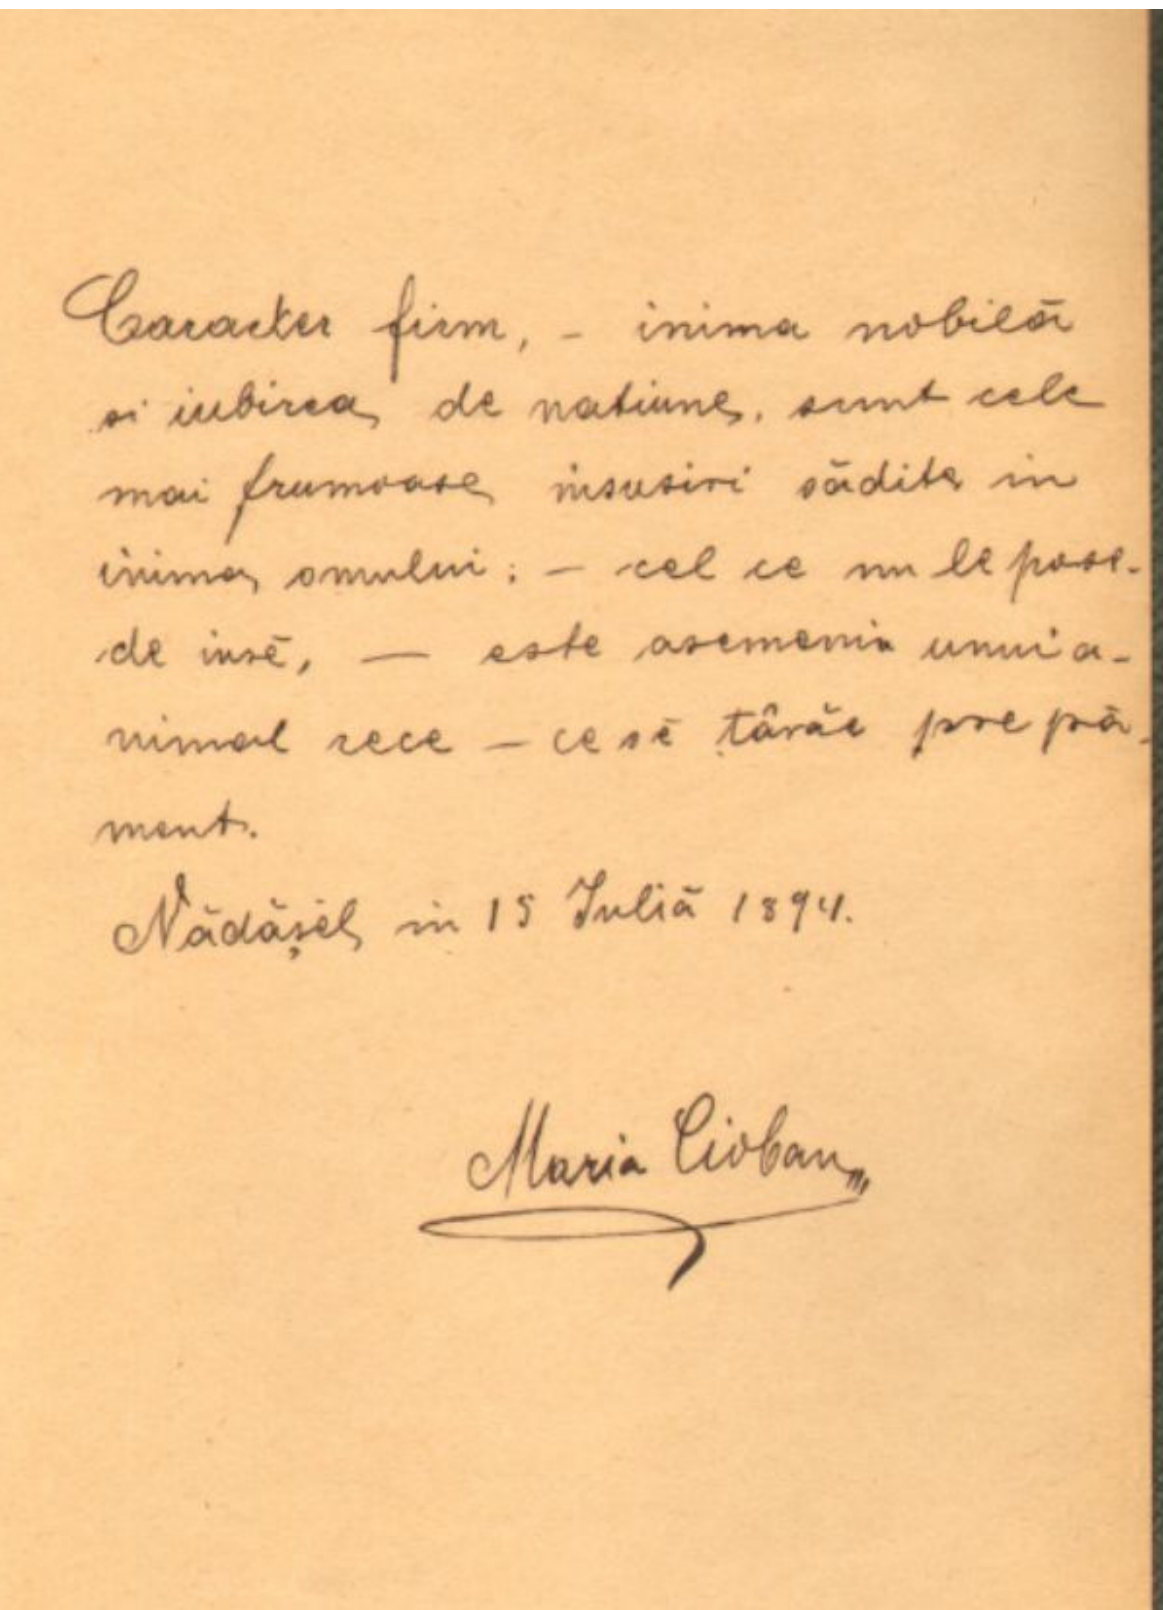 Caracter firm, – inima nobilă
si iubirea de natiune, sunt cele
mai frumoase insusiri sădite in
inima omului; – cel ce nu le pose-
de insĕ, — este asemenia unui a-
nimal rece – ce sĕ târăe pre pă-
ment.
Nădăşel in 15 Iuliă 1894.
Maria Cioban